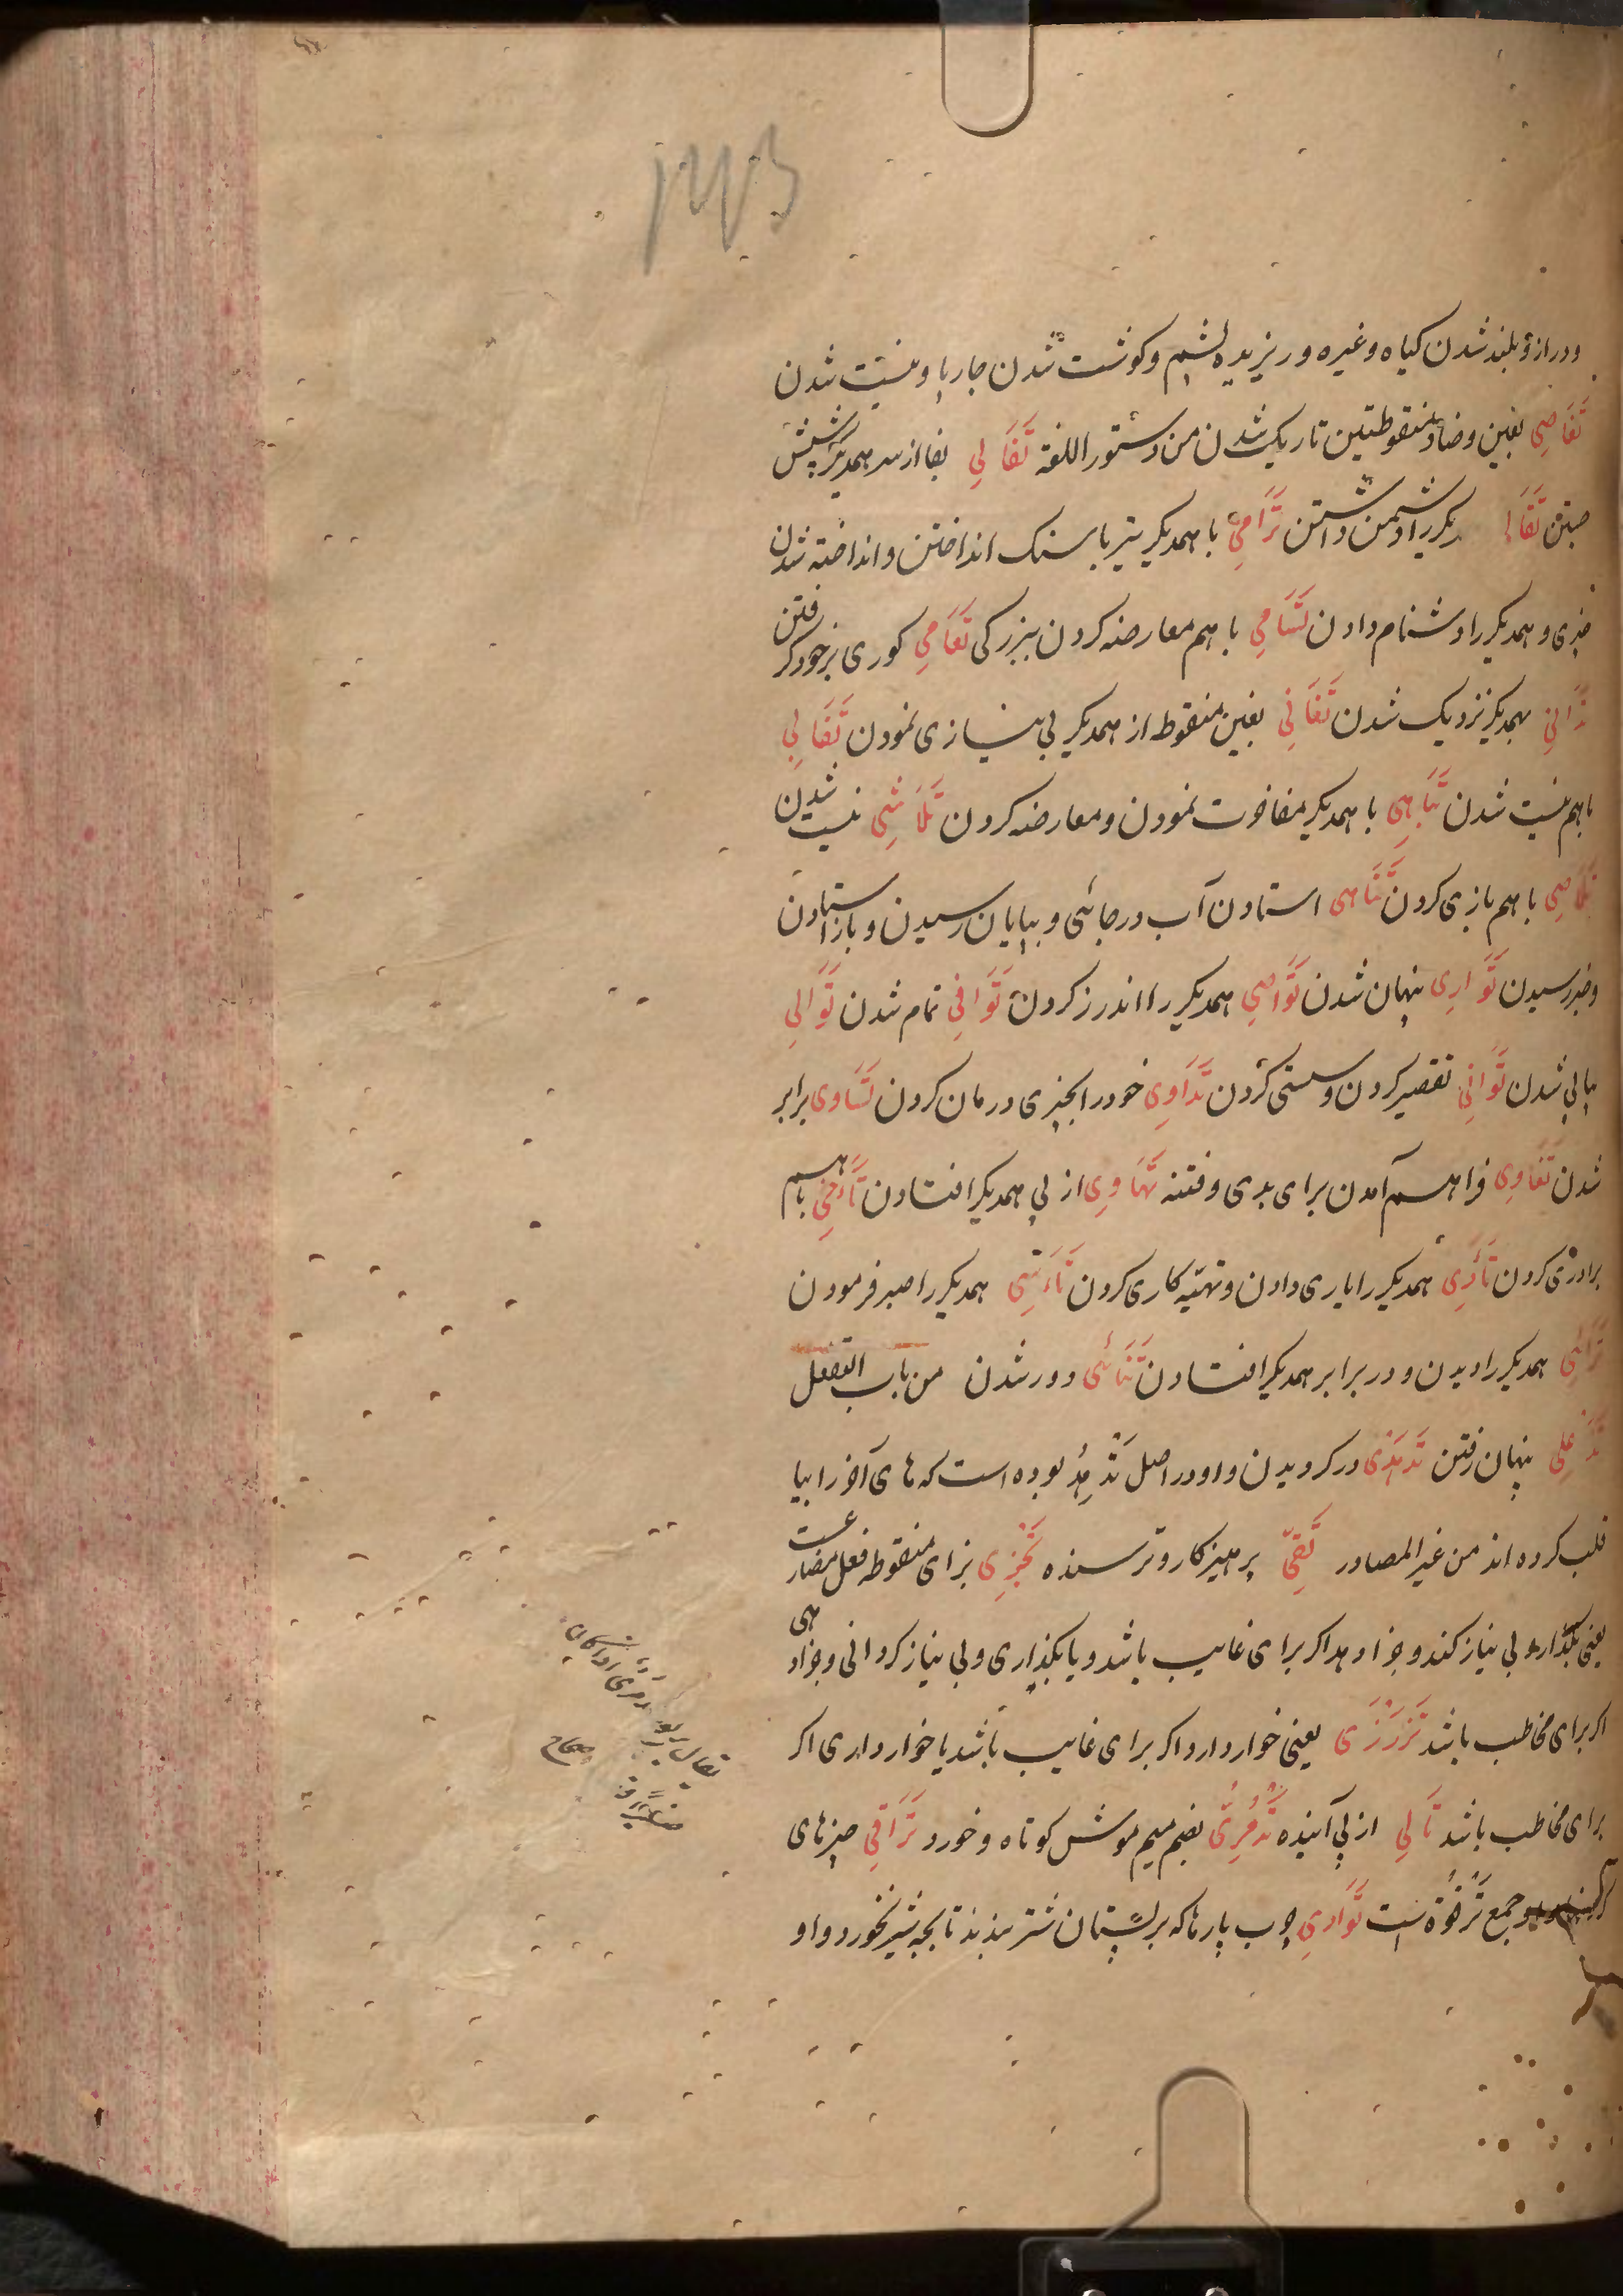 ودراز و بلند شدن کیاه وغیره وریزیده پشم وکوشت شدن چارپا ونیست شدن
تَغَاضِی بغین وضاد منقوطتین تاریک شدن من دستور اللغة تَفَالِی بفا از سر همدیکر شپش
جستن تَقَالِی دیکر را دشمن داشتن تَرَامِی با همدیکر تیر یا سنک انداختن وانداخته شدن
چیزی وهمدیکر را دشنام دادن تَسَامِی با هم معارضه کردن ببزرکی تَعَامِی کوری بر خود کرفتن
تَدَانِی بهمدیکر نزدیک شدن تَغَانِی بغین منقوط از همدیکر بی نیازی نمودن تَفَانِی
با هم نیست شدن تَبَاهِی با همدیکر مفاخرت نمودن ومعارضه کردن تَلَاشِی نیست شدن
با هم بازی کردن تَنَاهِی استادن آب در جائی وبپایان رسیدن وباز استادن
وخبر رسیدن تَوَارِی پنهان شدن تَوَاصِی همدیکر را اندرز کردن تَوَافِی تمام شدن تَوَالِی
پیاپی شدن تَوَانِی تقصیر کردن وسستی کردن تَدَاوِی خود را بچیزی درمان کردن تَسَاوِی برابر
شدن تَغَاوِی فراهم آمدن برای بدی وفتنه تَهَاوِی از پی همدیکر افتادن تَأَخِّی با هم
برادری کردن تَأَدِی همدیکر را یاری دادن وتهیّه کاری کردن تَأَسِّی همدیکر را صبر فرمودن
تَرَائِی همدیکر را دیدن ودر برابر همدیکر افتادن تَنَائِی دور شدن من باب التفعلل
پنهان رفتن تَدَهْدِی در کردیدن واو در اصل تَدَهْدُه بوده است که های آخر را بیا
قلب کرده اند من غیر المصادر تَقِیّ پرهیزکار وترسنده تَجْزِی بزای منقوطه فعل مضارعست
یعنی بگذارد وبی نیاز کند وجزا دهد اکر برای غایب باشد ویا بکذاری وبی نیاز کردانی وجزا دهی
اکر برای مخاطب باشد تَزْدَرِی یعنی خوار دارد اکر برای غایب باشد یا خوار داری اکر
برای مخاطب باشد تَالِی از پی آینده تُدْمُرِیّ بضم میم موش کوتاه وخورد تَرَاقِی چیزهای
جمع تَرْقُوَة است تَوَادِی چوب پارها که بر پستان شتر بندند تا بچه شیر نخورد واو
صحاح